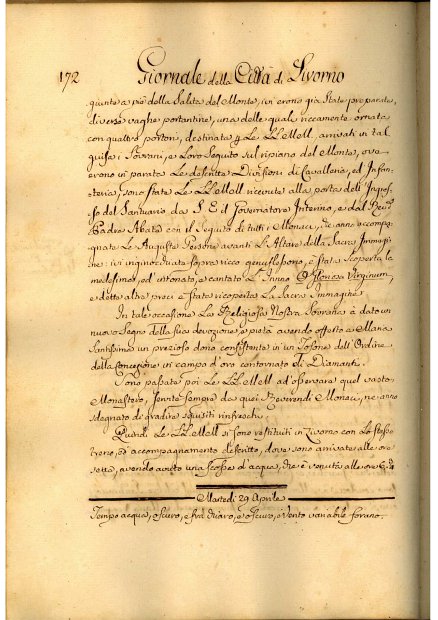 172 Giornale della Città di Livorno
giunte a piè della Salita del Monte, ivi erono già State preparate,
diverse vaghe portantine, una delle quali riccamente ornata
con quattro portoni, destinata p Le LL. MM, arrivati in tal
guisa i Sovrani, e Loro Seguito sul ripiano del Monte, ove
erono in parata Le descritte Divisioni di Cavalleria, ed Infan=
teria, sono state Le LL. MM ricevute alla porta dell'Ingres=
so del Santuario da S. E. il Governatore Interino, e dal Rev.
Padre Abate con il Seguito di tutti i Monaci, che anno accompa=
gnate Le Auguste Persone avanti L'Altare della Sacra Immagi=
ne: ivi inginocchiate sopra ricco genuflessorio, è stata Scoperta la
medesima, ed intonato, e cantato L'Inno O Gloriosa Virginum,
e dette altre preci è stata ricoperta La Sacra Immagine
In tale occasione La Religiosa Nostra Sovrana à dato un
nuovo Segno della sua devozione, e pietà avendo offerto a Maria
Santissima un prezioso dono consistente in un Tosone dell'Ordine
della Concezione in campo d'oro contornato di Diamanti.
Sono passate poi Le LL. MM ad osservare quel vasto
Monastero, servite sempre da quei Reverendi Monaci, ne anno
sdegnato di gradire squisiti rinfreschi.
Quindi Le LL. MM si sono restituiti in Livorno con Lo stesso
treno, ed accompagnamento descritto, dove sono arrivate alle ore
sette, avendo avuto una scossa d'acqua, che è venuta alle ore
Martedì 29 Aprile
Tempo acqua, oscuro, e fra chiaro, e oscuro, e Vento variabile forano.